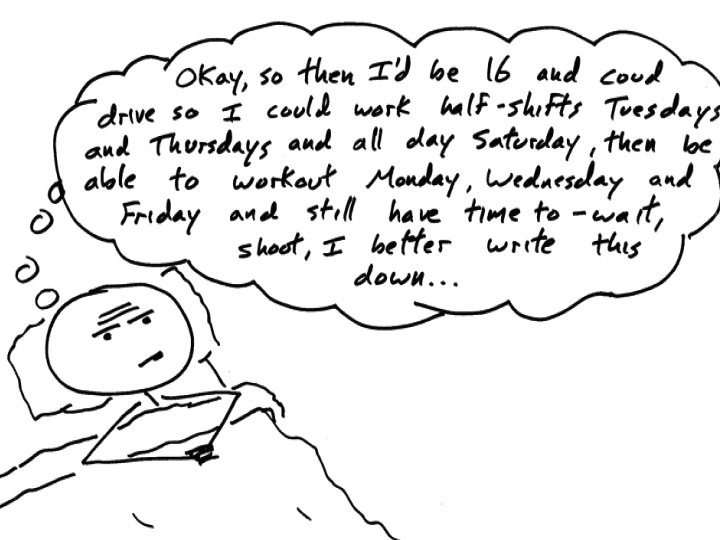 Okay, so then I'd be 16 and coud
drive so I could work half-shifts Tuesdays
and Thursdays and all day Saturday, then be
able to workout Monday, Wednesday and
Friday and still have time to - wait,
shoot, I better write this
down...